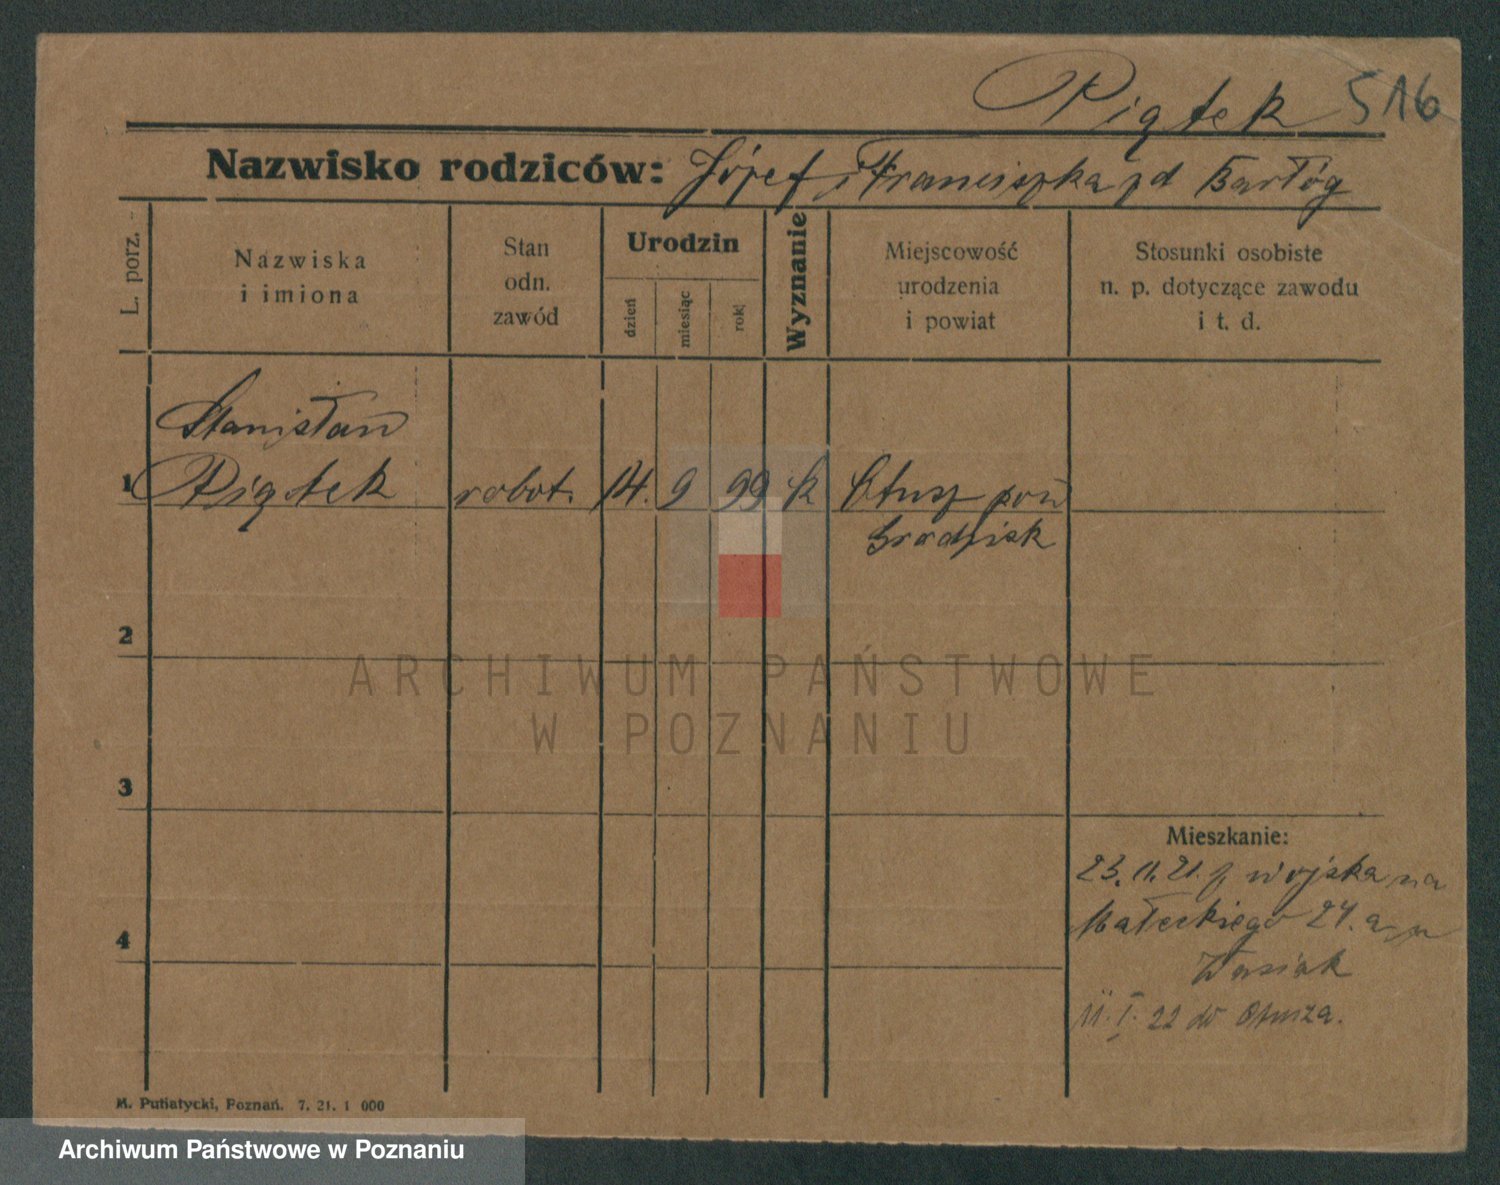 Piątek 516
Nazwisko rodziców: Józef i Franciszka zd Bartóg
L. porz.
Nazwiska
i imiona
Stan
odn.
zawód
Urodzin
dzień
miesiąc
rok
Wyznanie
Miejscowość
urodzenia
i powiat
Stosunki osobiste
n. p. dotyczące zawodu
i t. d.
Stanisław
1 Piątek robot. 14. 9 99 k Otusz pow
Grodzisk
2
3
4
Mieszkanie:
23.11.21 z wojska na
Małeckiego 24.a
Wasiak
11.I.22 do Otusza.
M. Putiatycki, Poznań. 7. 21. 1 000
ARCHIWUM PAŃSTWOWE
W POZNANIU
Archiwum Państwowe w Poznaniu